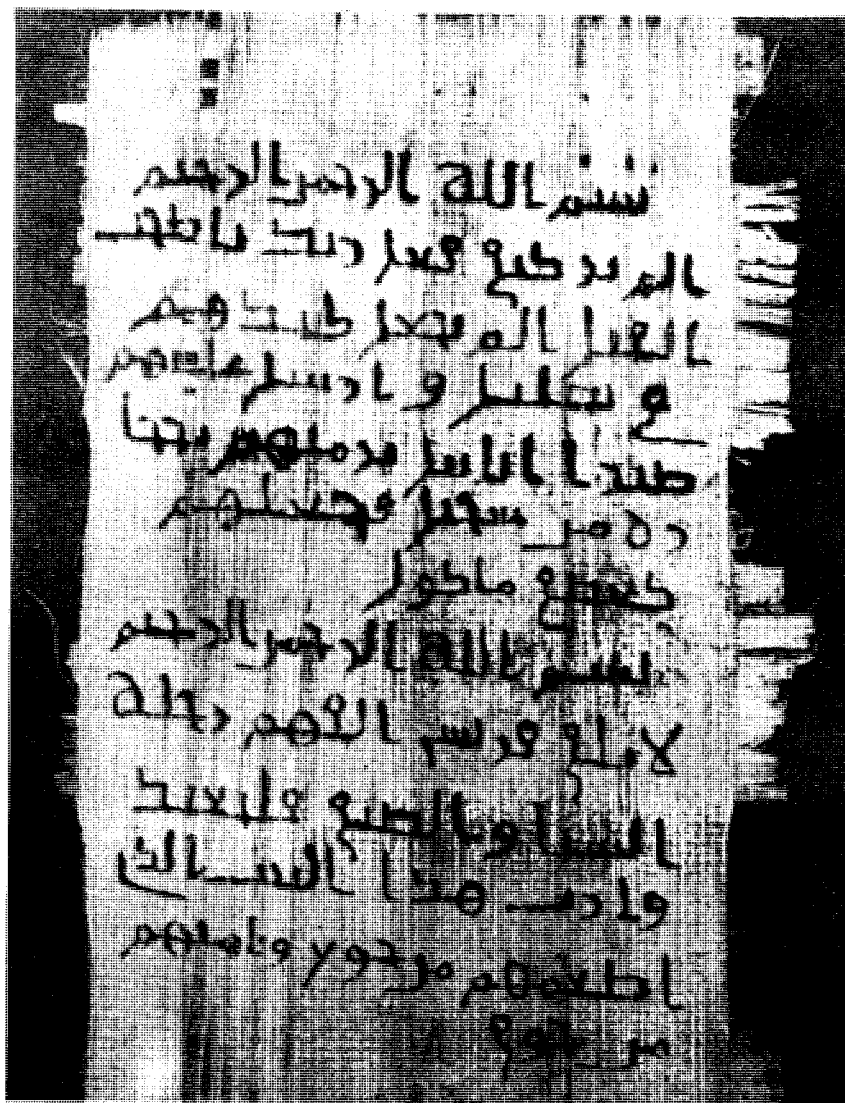 بسم الله الرحمن الرحيم
الم تر كيف فعل ربك باصحب
الفيل الم يجعل كيدهم
في تضليل و ارسل عليهم
طيرا ابابيل ترميهم بحجا
رة من سجيل فجعلهم
كعصف ماكول
بسم الله الرحمن الرحيم
لايلف قريش الفهم رحلة
الشتا والصيف فليعبد
وا رب هذا البيت الذي
اطعمهم من جوع وامنهم
من خوف